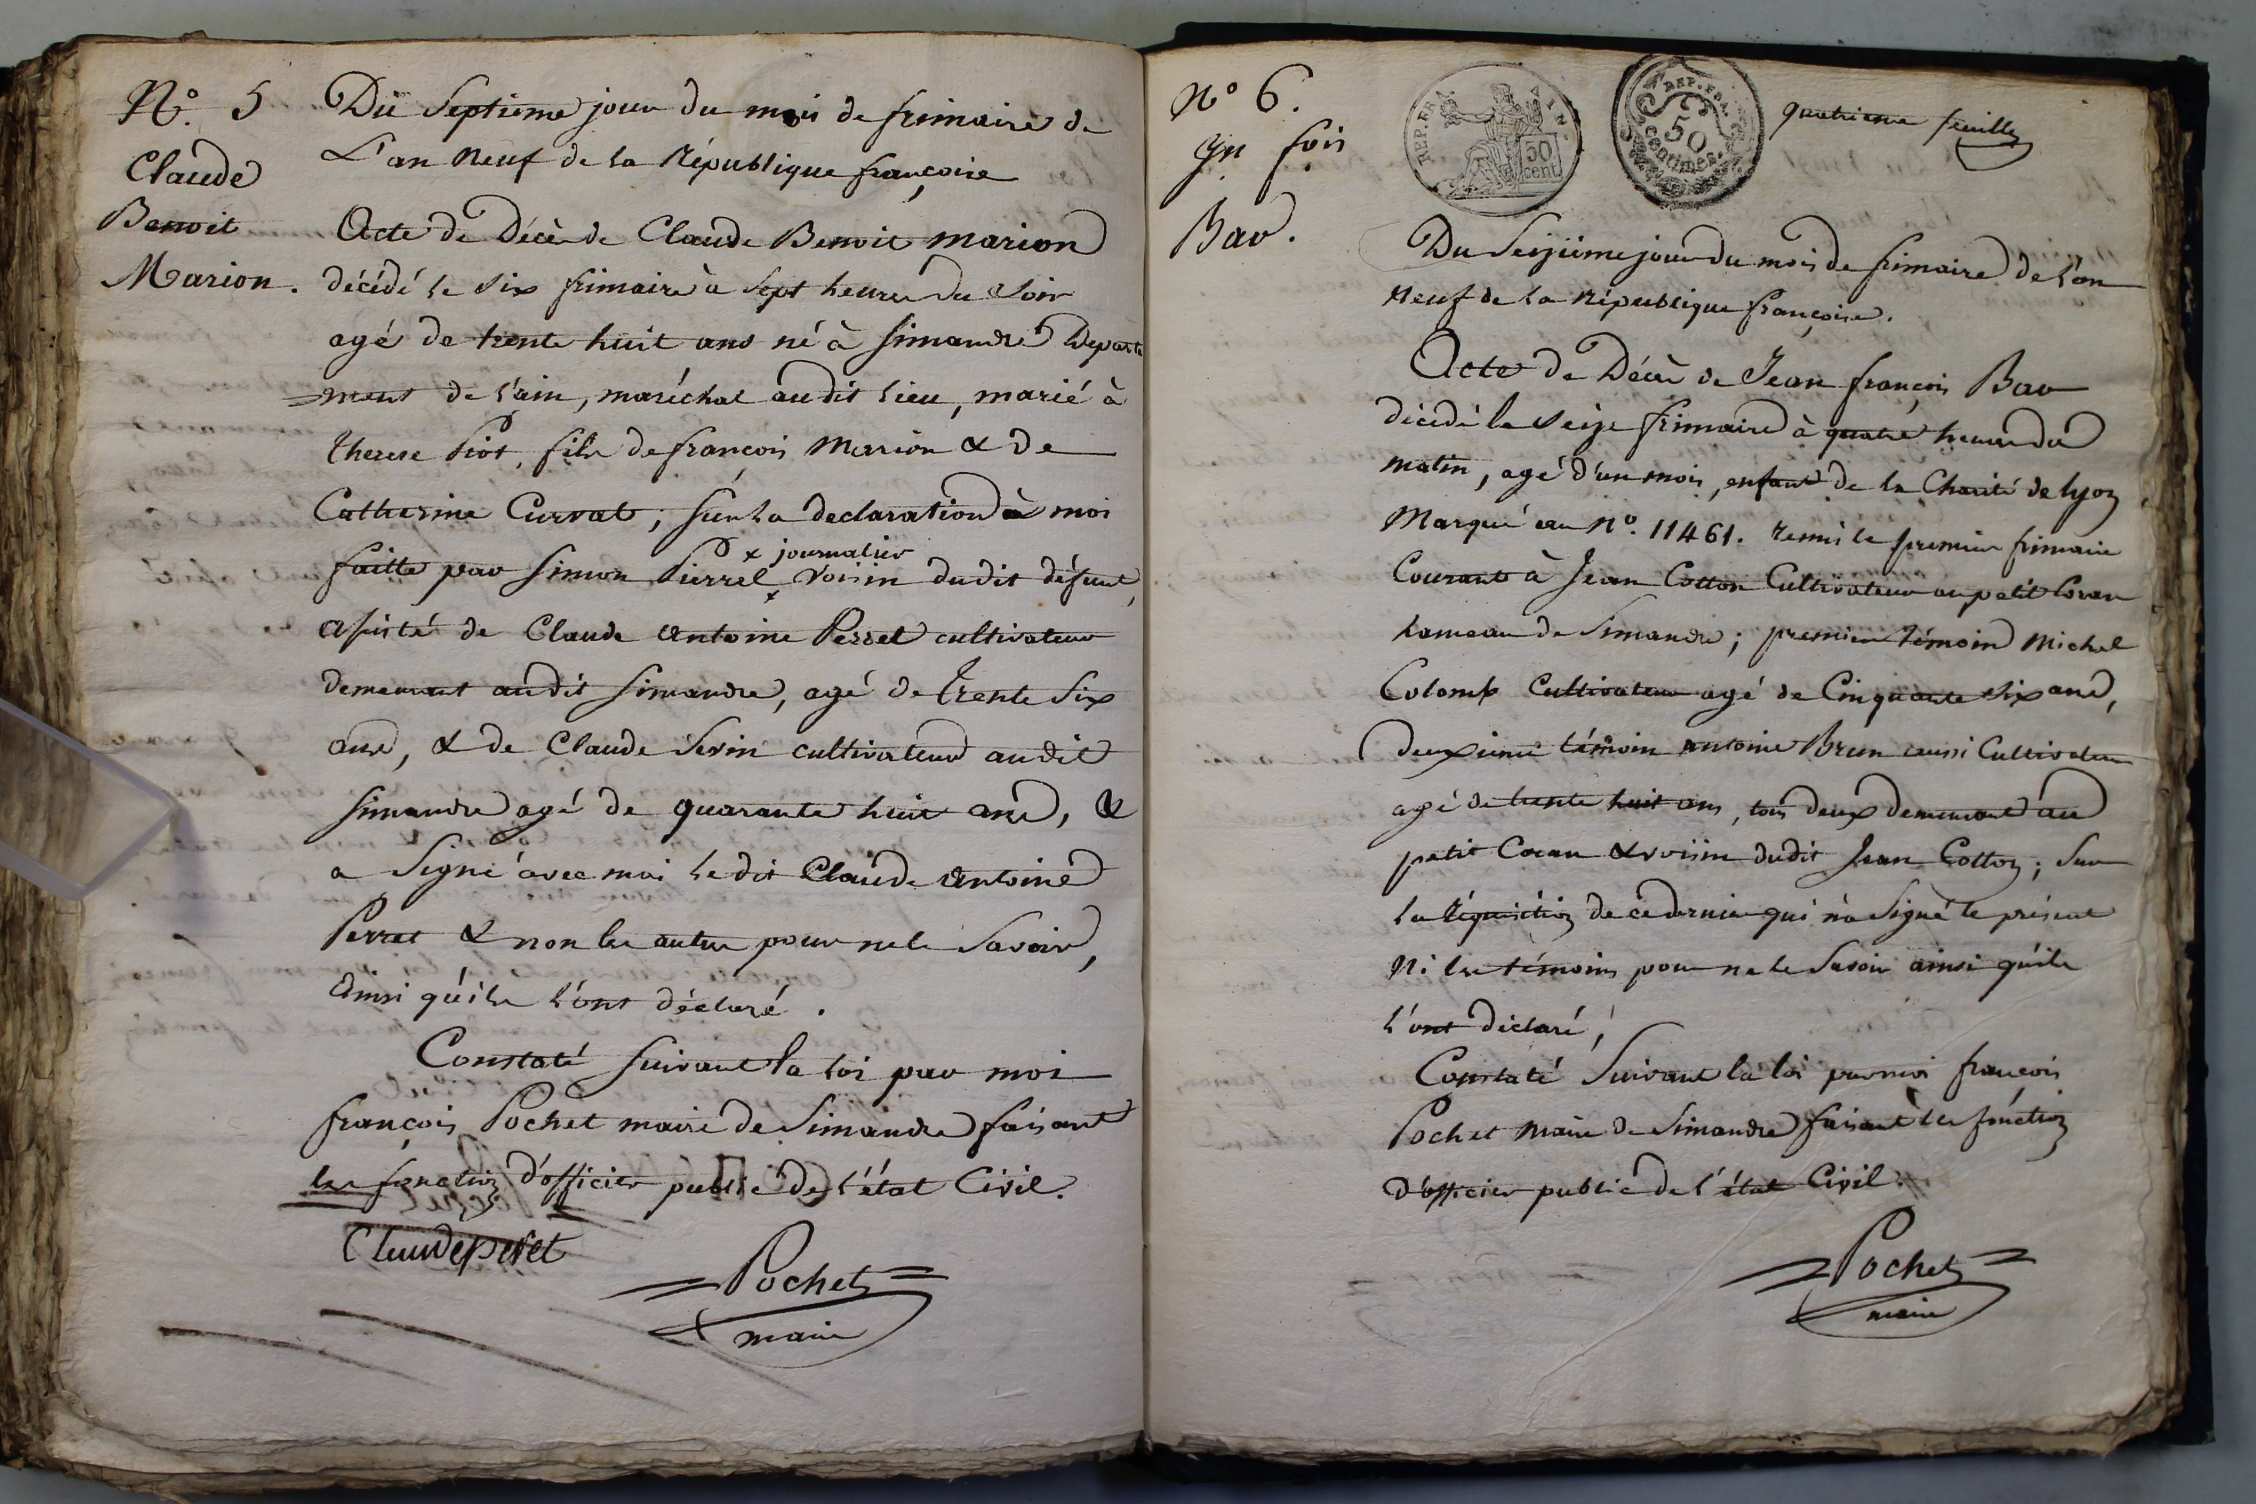 N.° 5
Claude
Benoit
Marion.
Du Septieme jour du mois de frimaire de
L'an neuf de la République françoise
Acte de Décès de Claude Benoit Marion
décédé le six frimaire à sept heures du soir
agé de trente huit ans né à Simandre Departe
=ment de l'ain, maréchal audit lieu, marié à
therese Piot, fils de françois Marion & de
Catherine Curvat, sur la declaration à moi
faitte par Simon Pierrel x voisin dudit défunt,
x journalier
assisté de Claude Antoine Perret cultivateur
demeurant audit Simandre, agé de trente six
ans, & de Claude Sevin cultivateur audit
Simandre agé de quarante huit ans, &
a Signé avec moi ledit Claude Antoine
Perret & non les autres pour ne le Savoir,
Ainsi qu'ils l'ont déclaré.
Constaté suivant la loi par moi
françois Pochet maire de Simandre faisant
les fonction d'officier public de l'état Civil.
Claude peret
=Pochet=
maire
N° 6.
Jn fois
Bav.
REP. FRA.
50
cent
REP. FRA.
50
centimes.
quatrieme feuille
Du Seizième jour du mois de frimaire de l'an
neuf de la République françoise.
Acte de Décès de Jean françois Bav
décédé le seize frimaire à quatre heures du
matin, agé d'un mois, enfant de la Charité de lyon
Marqué au N°. 11461. remis le premier frimaire
Courant à Jean Cotton Cultivateur au petit Coran
hameau de Simandre; premier témoin Michel
Colomb Cultivateur agé de Cinquante six ans,
deuxieme témoin antoine Brun aussi Cultivateur
agé de trente huit ans, tous deux demeurant au
petit Coran & voisin dudit Jean Cotton; Sur
la réquisition de ce dernier qui n'a Signé le présent
Ni les témoins pour ne le Savoir ainsi qu'ils
l'ont déclaré,
Constaté Suivant la loi par moi françois
Pochet Maire de Simandre faisant les fonction
D'officier public de l'état Civil.
=Pochet=
maire